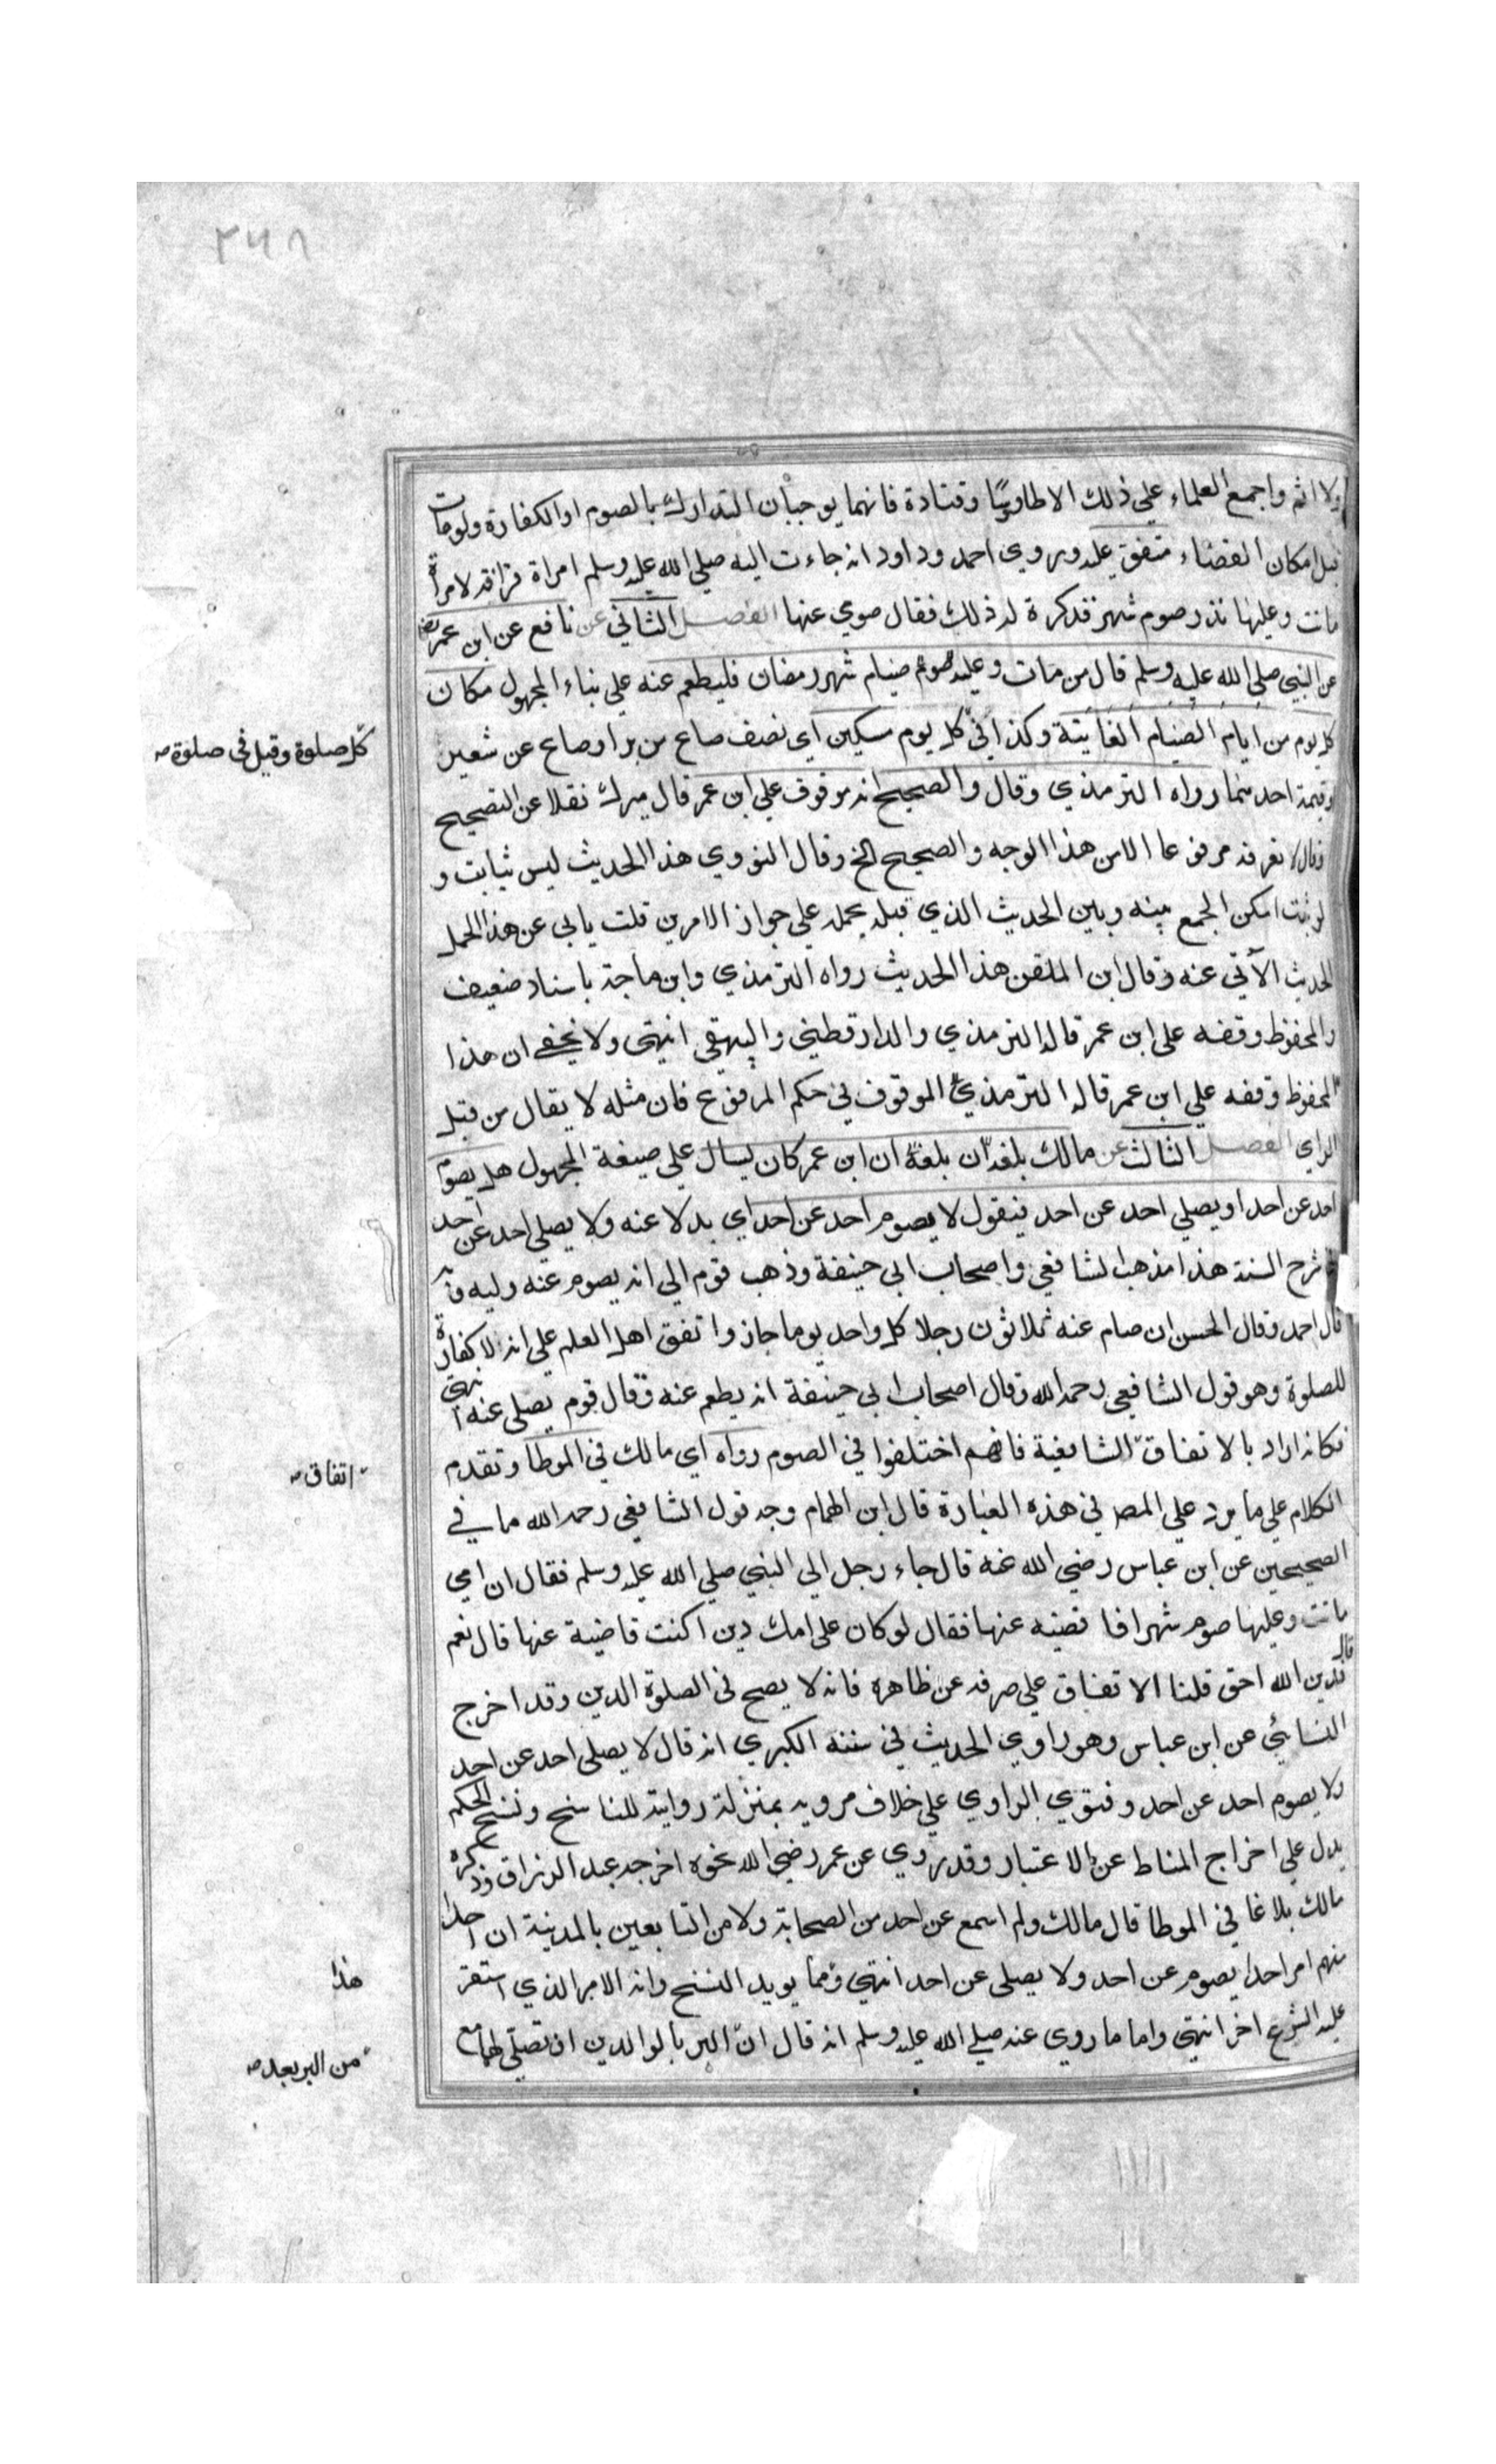 ٢٦٨
ولا اثم واجمع العلماء علي ذلك الا طاوسا وقتادة فانهما يوجبان التدارك بالصوم او الكفارة ولو مات
قبل امكان القضاء متفق عليه وروي احمد وداود انه جاءت اليه صلي الله عليه وسلم امراة قرابة لامراة
ماتت وعليها نذر صوم شهر فذكرة له ذلك فقال صومي عنها الفصل الثاني عن نافع عن ابن عمر
عن النبي صلي الله عليه وسلم قال من مات وعليه صوم صيام شهر رمضان فليطعم عنه علي بناء المجهول مكان
كل يوم من ايام الصيام الفايتة وكذا في كل يوم مسكين اي نصف صاع من بر او صاع عن شعير
كل صلوة وقيل في صلوة صح
وقيمة احدهما رواه الترمذي وقال والصحيح انه موقوف علي ابن عمر قال ميرك نقلا عن التصحيح
وقال لا نعرفه مرفوعا الا من هذا الوجه والصحيح الخ وقال النووي هذا الحديث ليس بثابت و
لو ثبت امكن الجمع بينه وبين الحديث الذي قبله بحمله علي جواز الامرين قلت يابي عن هذا الحمل
الحديث الآتي عنه وقال ابن الملقن هذا الحديث رواه الترمذي وابن ماجة باسناد ضعيف
والمحفوظ وقفه على ابن عمر قاله الترمذي والدارقطني والبيهقي انتهى ولا يخفي ان هذا
المحفوظ وقفه علي ابن عمر قاله الترمذي الموقوف في حكم المرفوع فان مثله لا يقال من قبل
الراي الفصل الثالث عن مالك بلغه ان بلغه ان ابن عمر كان يسال علي صيغة المجهول هل يصوم
احد عن احد او يصلي احد عن احد فيقول لا يصوم احد عن احد اي بدلا عنه ولا يصلي احد عن احد
في شرح السنة هذا مذهب الشافعي واصحاب ابي حنيفة وذهب قوم الي انه يصوم عنه وليه وبه
قال احمد وقال الحسن ان صام عنه ثلاثون رجلا كل واحد يوما جاز واتفق اهل العلم علي انه لا كفارة
للصلوة وهو قول الشافعي رحمه الله وقال اصحاب ابي حنيفة انه يطعم عنه وقال قوم يصلي عنه انتهي
فكانه اراد بالاتفاق الشافعية فانهم اختلفوا في الصوم رواه اي مالك في الموطا وتقدم
اتفاق صح
الكلام علي ما يرد علي المص في هذه العبارة قال ابن الهمام وجه قول الشافعي رحمه الله ما في
الصحيحين عن ابن عباس رضي الله عنه قال جاء رجل الي النبي صلي الله عليه وسلم فقال ان امي
ماتت وعليها صوم شهر افاقضيه عنها فقال لو كان علي امك دين اكنت قاضية عنها قال نعم
قال فدين الله احق قلنا الاتفاق علي صرفه عن ظاهره فانه لا يصح في الصلوة الدين وقد اخرج
النسائي عن ابن عباس وهو راوي الحديث في سننه الكبري انه قال لا يصلي احد عن احد
ولا يصوم احد عن احد وفتوي الراوي علي خلاف مرويه بمنزلة روايته للناسخ ونسخ الحكم
يدل علي اخراج المناط عن الاعتبار وقد روي عن عمر رضي الله نحوه اخرجه عبد الرزاق وذكره
مالك بلاغا في الموطا قال مالك ولم اسمع عن احد من الصحابة ولا من التابعين بالمدينة ان احدا
منهم امر احدا يصوم عن احد ولا يصلي عن احد انتهي ومما يويد النسخ وانه الامر الذي استقر
هذا
عليه الشرع اخر انتهي واما ما روي عنه صلي الله عليه وسلم انه قال ان البر بالوالدين ان تصلي لهما مع
من البر بعد صح